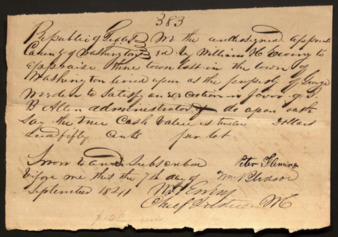 383
Republic of Texas We the undersigned appoint
County of Washington ed by William H Ewing to
appraise three town lots in the town of
Washington levied upon as the property of George
to satisfy an execution in favor of
B Allen administrator do upon oath
say the true Cash Value is twelve dollars
and fifty cents per lot
Sworn to and Subscribed Peter Fleming
before me this the 7th day of
September 1841
Chief Justice